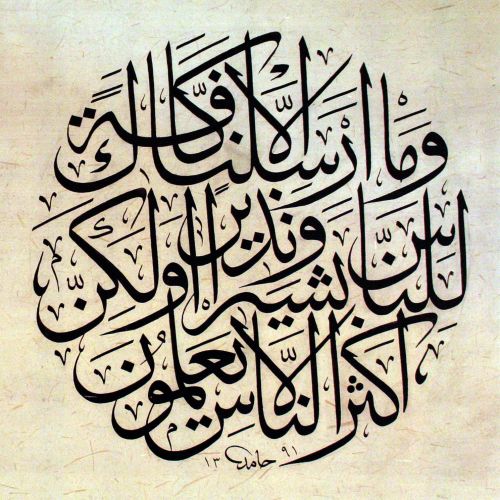 وَمَا اَرْسَلْنَاكَ اِلَّا كَافَّةً
لِلنَّاسِ بَشِيرًا وَنَذِيرًا وَلٰكِنَّ
اَكْثَرَ النَّاسِ لَا يَعْلَمُونَ
حامد ١٣٩١